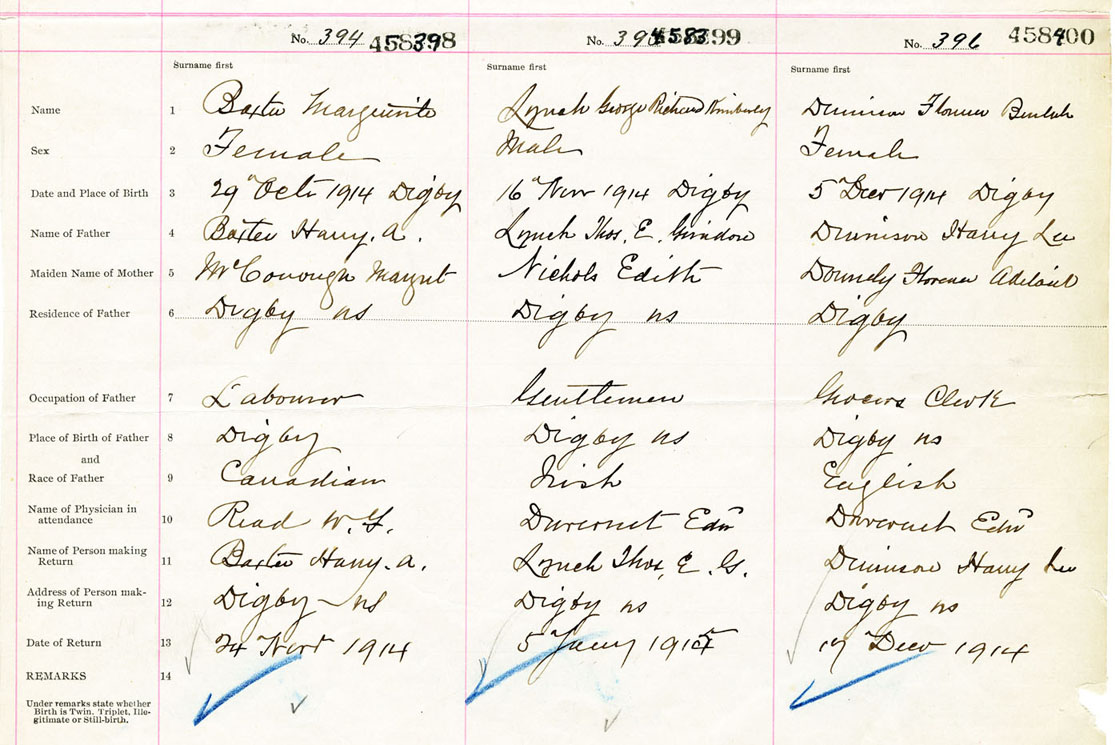 No. 394 458398 No. 395 458399 No. 396 458400
Surname first Surname first Surname first
Name 1 Baxter Marguerite Lynch George Richard Kimberley Dunnison Florence Beulah
Sex 2 Female Male Female
Date and Place of Birth 3 29" Oct 1914 Digby 16" Nov 1914 Digby 5" Decr 1914 Digby
Name of Father 4 Baxter Harry. A. Lynch Thos. E. Dunnison Harry Lee
Maiden Name of Mother 5 Nichols Edith Florence Adelaid
Residence of Father 6 Digby ns Digby ns Digby
Occupation of Father 7 Labourer Gentlemen Grocers Clerk
Place of Birth of Father 8 Digby Digby ns Digby ns
and
Race of Father 9 Canadian Irish English
Name of Physician in
attendance 10 Read W. Edw Edw
Name of Person making
Return 11 Baxter Harry. A. Lynch Thos. E. G. Dunnison Harry Lee
Address of Person mak-
ing Return 12 Digby ns Digby ns Digby ns
Date of Return 13 24 Nov 1914 5" Jany 1915 17 Decr 1914
REMARKS 14
Under remarks state whether
Birth is Twin. Triplet, Ille-
gitimate or Still-birth.